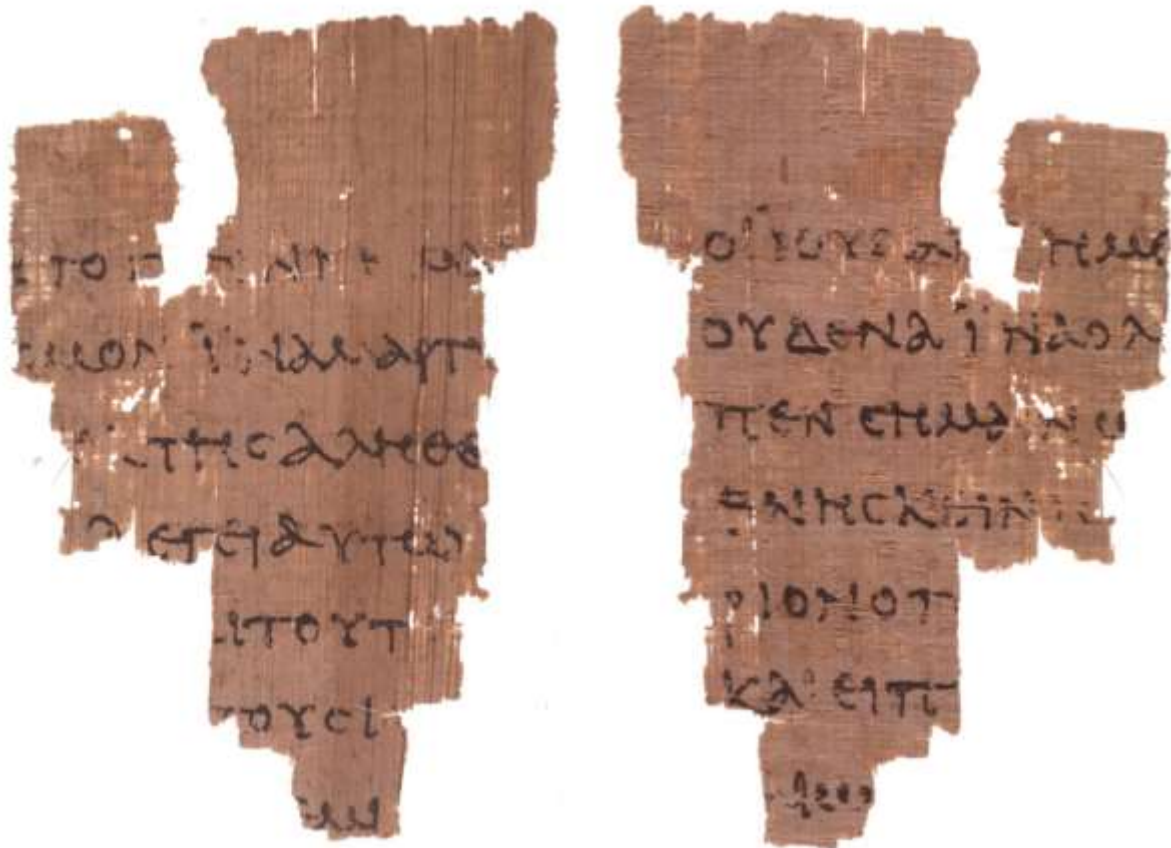 ΤΟ Γ Γ ΝΝΗ
ϹΜΟΝ ΪΝΑ ΜΑΡΤΥ
ΤΗϹ ΑΛΗΘΕ
ΛΕΓΕΙ ΑΥΤΩ
ΑΙ ΤΟΥΤ
ΤΟΥϹ Ι
ΕΜΙ
ΟΙ ΙΟΥΔΑΙ ΗΜΕ
ΟΥΔΕΝΑ ΪΝΑ Ο Λ
ΠΕΝ ϹΗΜΑΙΝΩ
ΘΝΗϹΚΕΙΝ
ΡΙΟΝ Ο Π
ΚΑΙ ΕΙΠ